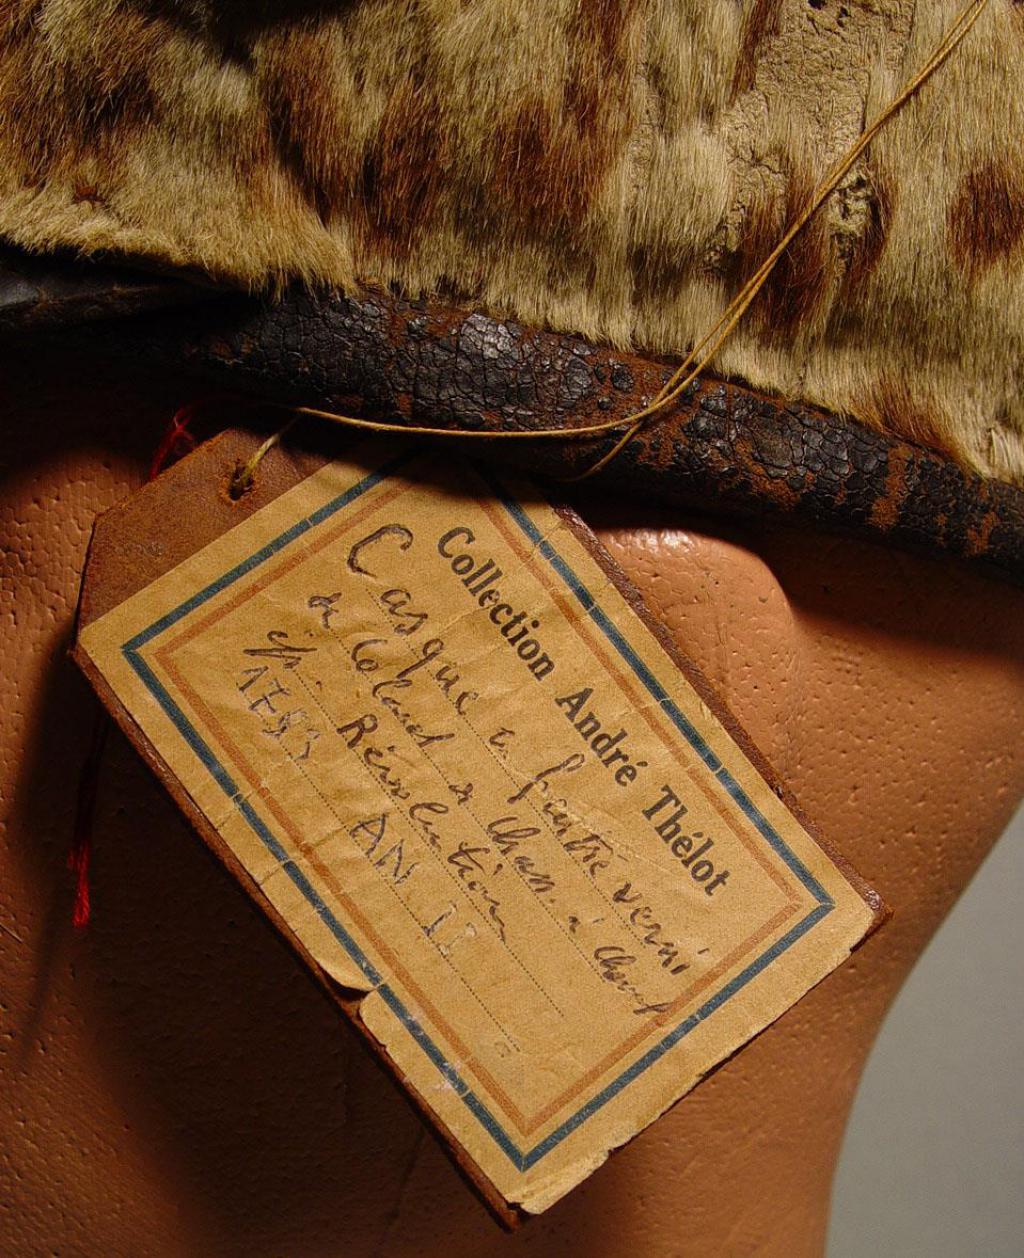 Collection André Thélot
Casque en feutre verni
de Colonel de Chass. à Cheval
Révolution
1793 AN II